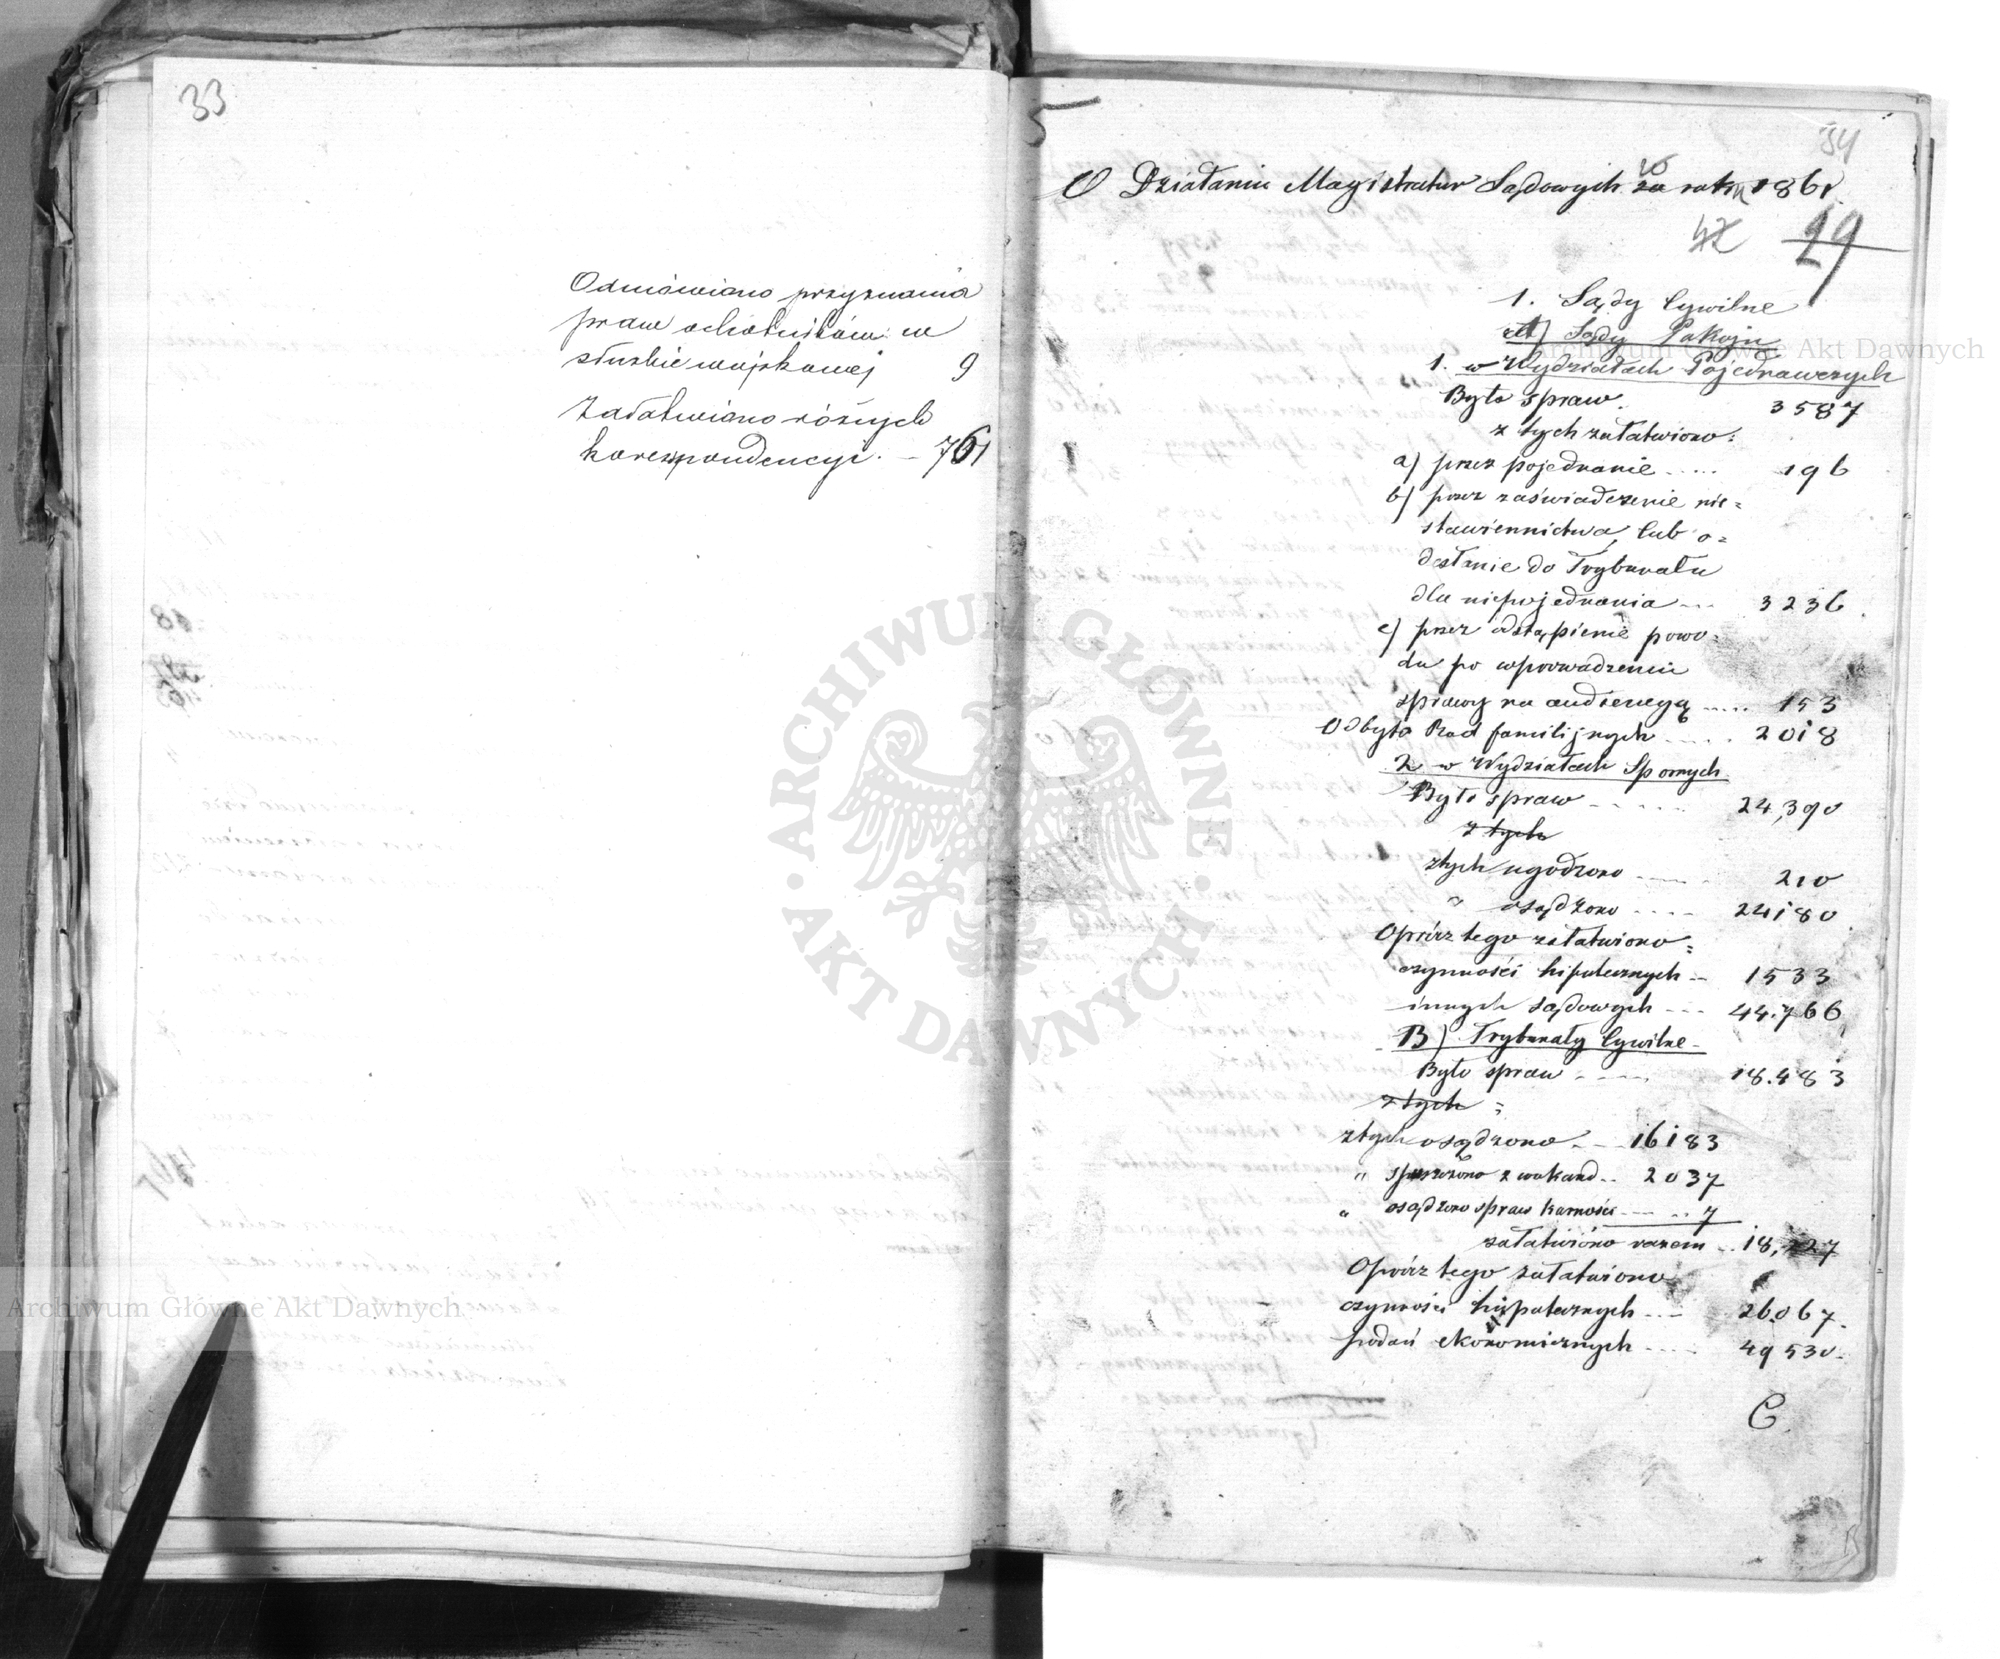 33
Odmówiono przyznania
praw ochotników w
służbie wojskowej 9
Załatwiono różnych
korespondencyi. – 761
5
34
O Działaniu Magistratur Sądowych w roku 1861.
42 29
1. Sądy Cywilne
A) Sądy Pokoju
1. w Wydziałach Pojednawczych
Było spraw. 3587
z tych załatwiono:
a) przez pojednanie ..... 196
b) przez zaświadczenie nie=
stawiennictwa, lub o=
desłanie do Trybunału
dla niepojednania ... 3236
c) przez odstąpienie powo=
du po wprowadzeniu
sprawy na audiencyą ..... 153
Odbyto Rad familijnych ..... 2018
2. w Wydziałach Spornych
Było spraw ..... 24,390
z tych
z tych ugodzono ..... 210
" osądzono .... 24180
Oprócz tego załatwiono=
czynności hipotecznych .. 1533
innych sądowych ... 44.766
B) Trybunały Cywilne
Było spraw .... 18.483
z tych =
z tych osądzono ... 16183
" spuszczono z wokand .. 2037
" osądzono spraw karności ..... 7
załatwiono razem .. 18,227
Oprócz tego załatwiono
czynności hipotecznych ... 26.067.
podań ekonomicznych .... 49530.
C
ARCHIWUM GŁÓWNE AKT DAWNYCH
Archiwum Główne Akt Dawnych
Archiwum Główne Akt Dawnych